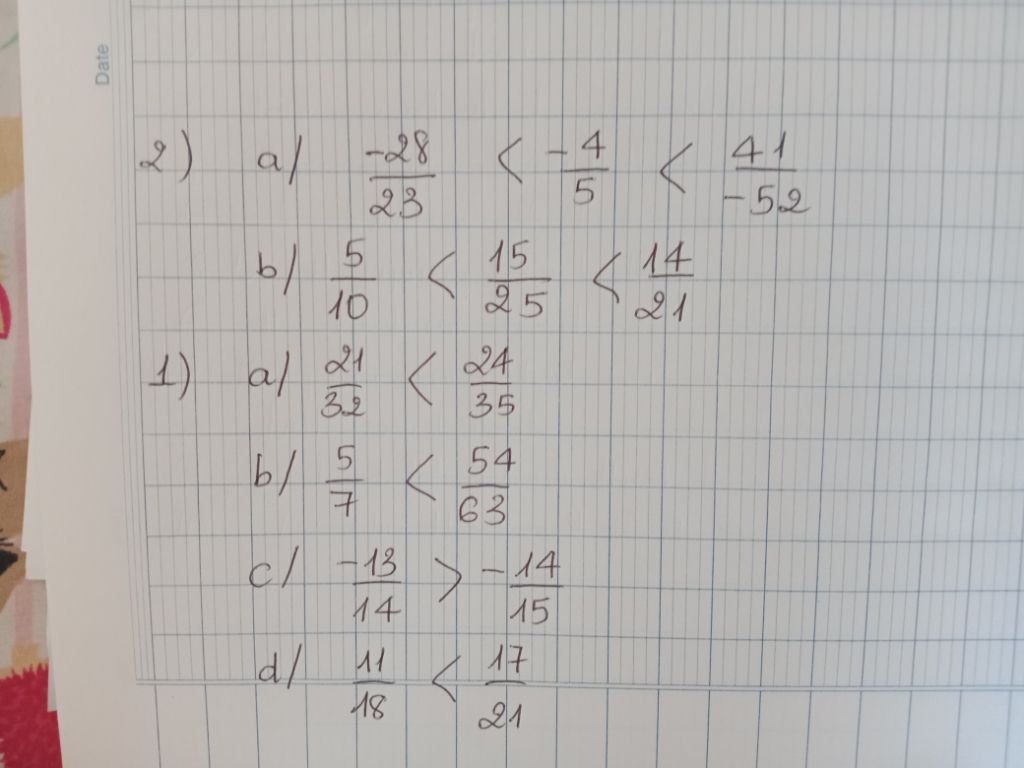 Date
2) a/ -28/23 < -4/5 < 41/-52
b/ 5/10 < 15/25 < 14/21
1) a/ 21/32 < 24/35
b/ 5/7 < 54/63
c/ -13/14 > -14/15
d/ 11/18 < 17/21